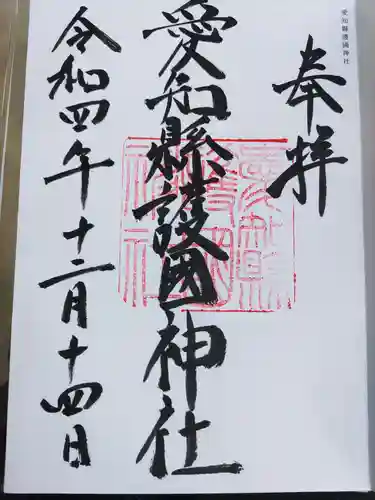 愛知縣護國神社
奉拝
愛知縣護國神社
令和四年十二月十四日